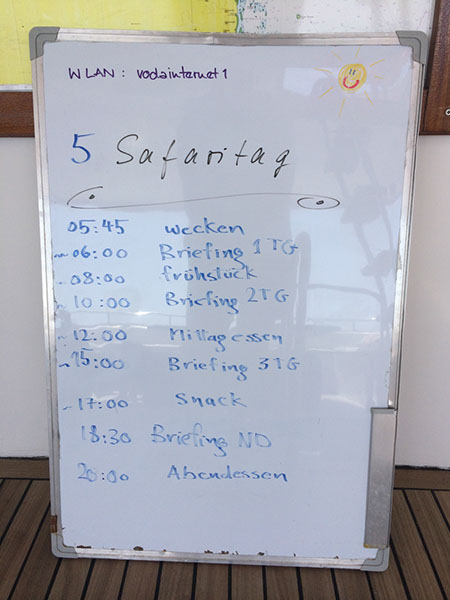 WLAN: vodainternet1
5 Safaritag
05:45 wecken
~06:00 Briefing 1TG
~08:00 frühstück
~10:00 Briefing 2TG
~12:00 Mittagessen
~15:00 Briefing 3TG
~17:00 Snack
18:30 Briefing ND
20:00 Abendessen